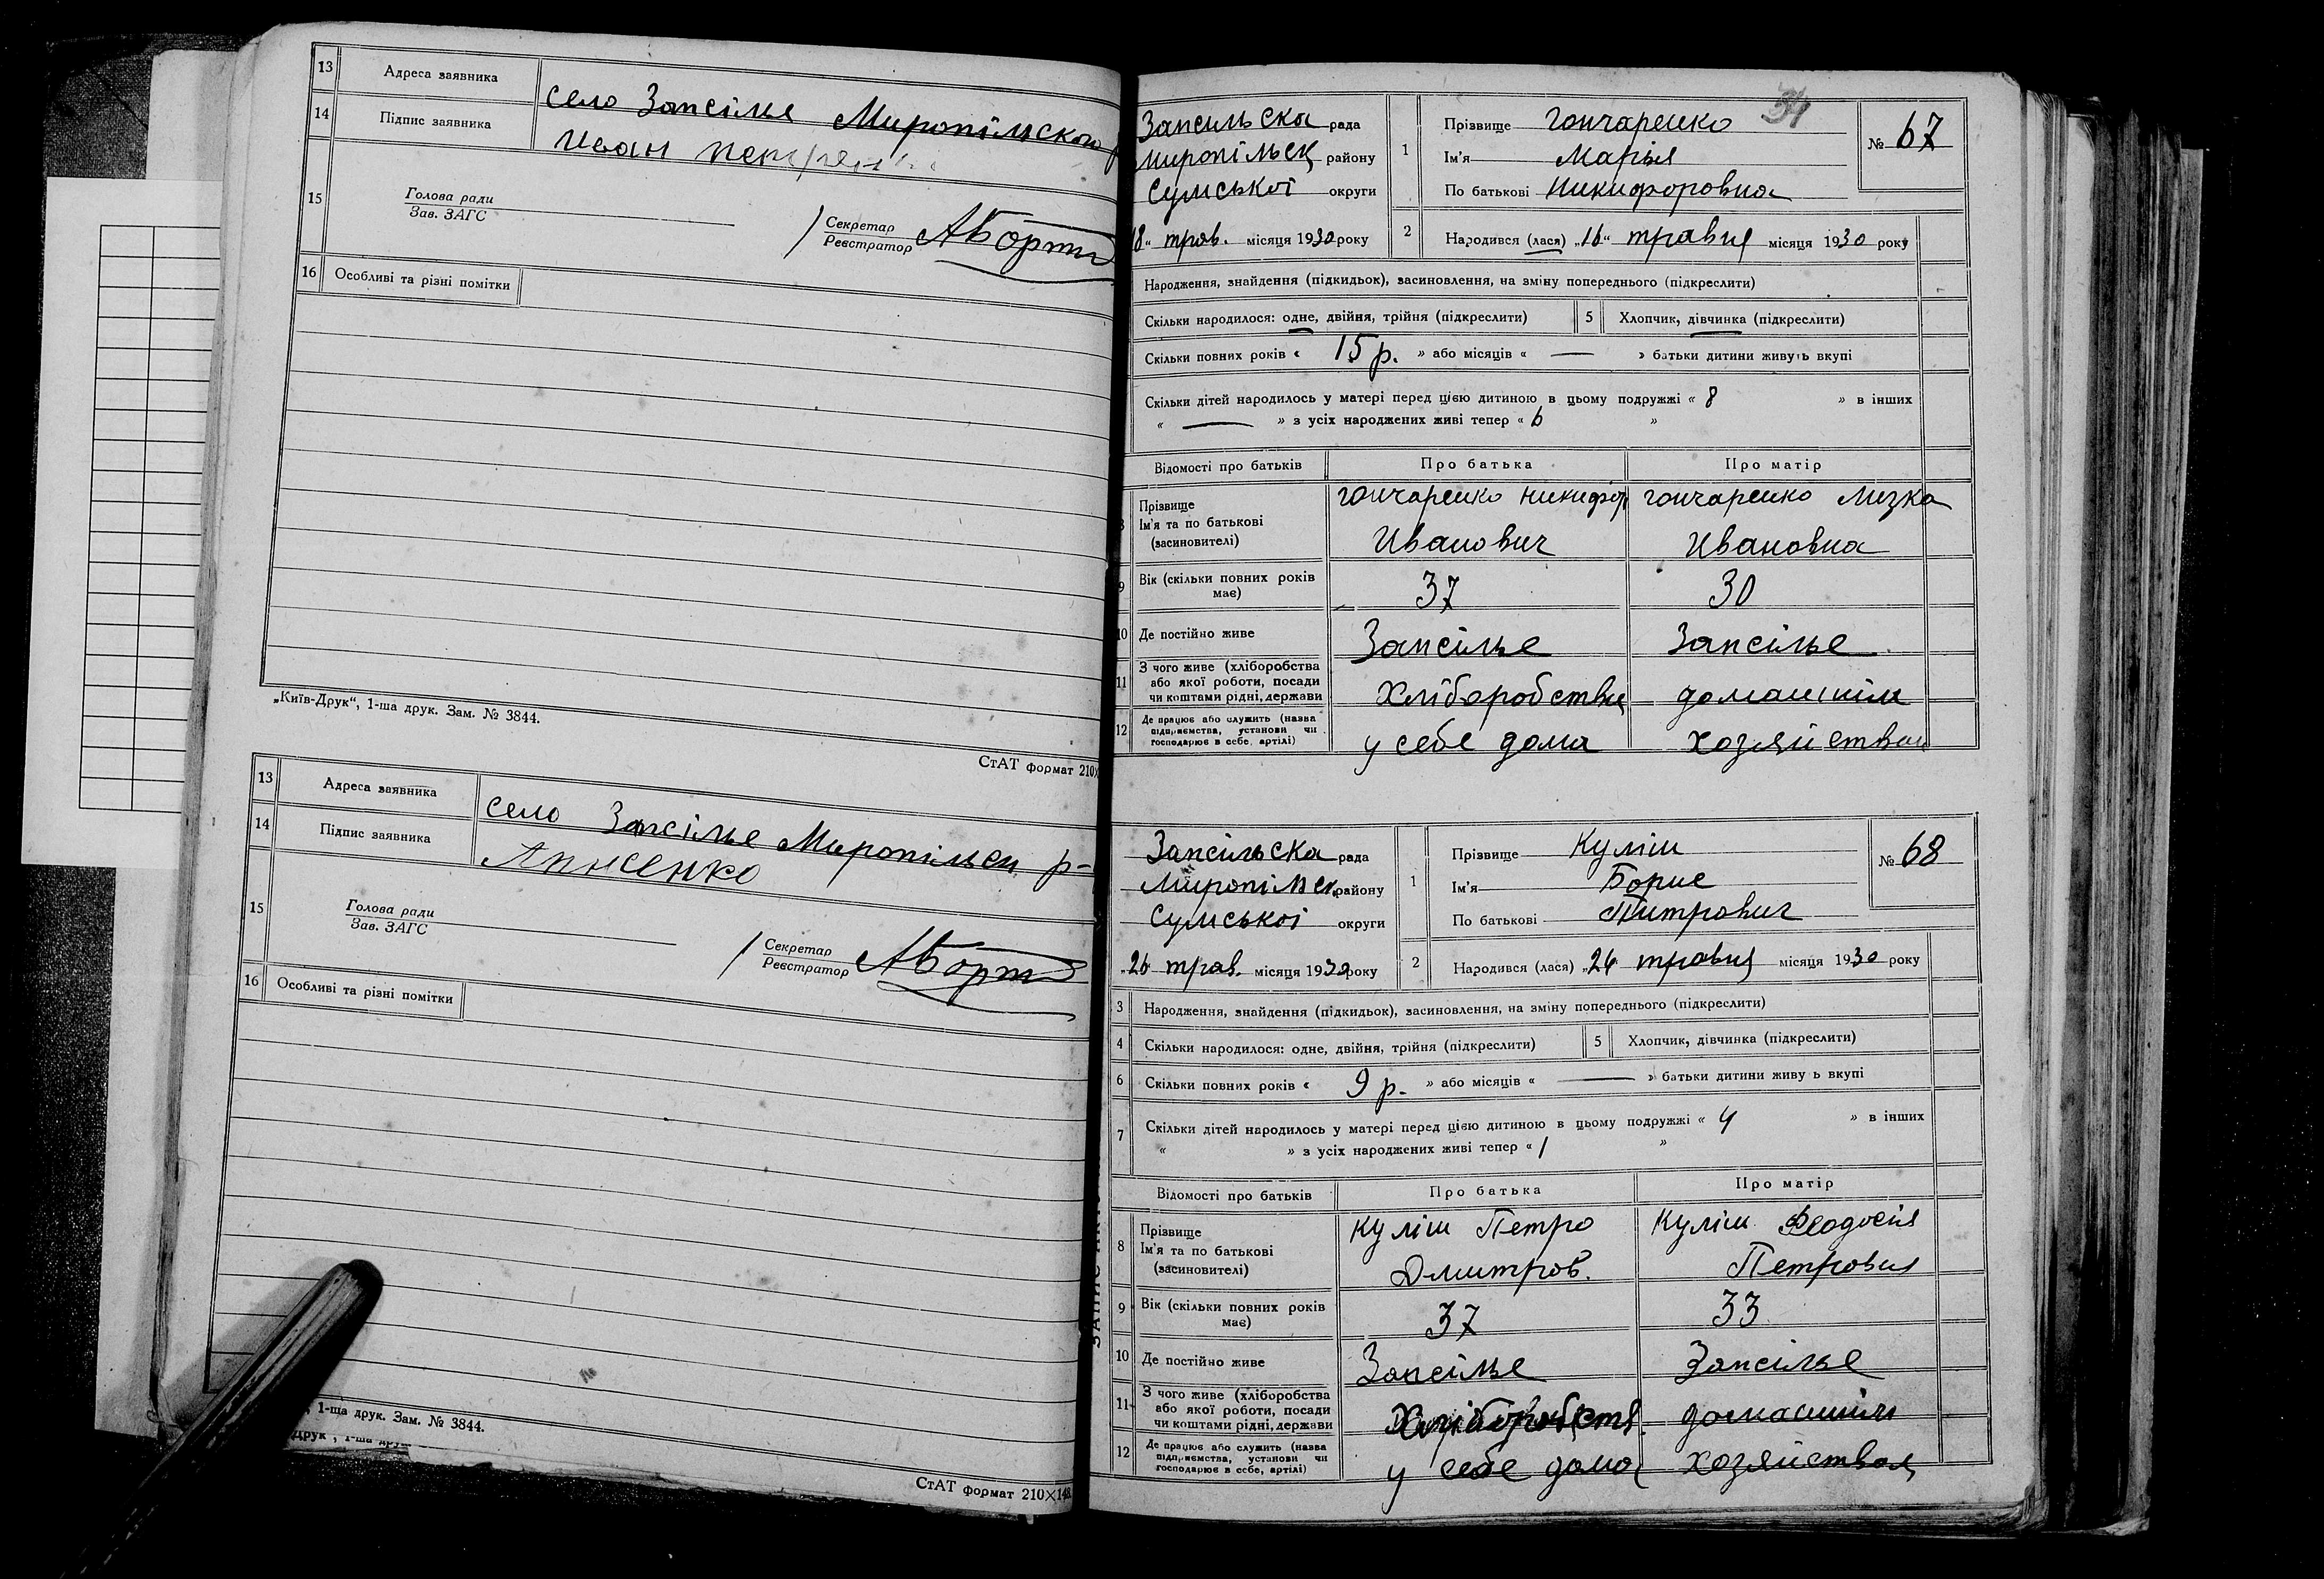 13 Адреса заявника село Запсілье Миропільского
14 Підпис заявника Иван
15 Голова ради
Зав. ЗАГС
Секретар
Реєстратор
16 Особливі та різні помітки
„Київ-Друк“, 1-ша друк. Зам. № 3844.
СтАТ формат 210×
13 Адреса заявника село Запсілье Миропільськ р-
14 Підпис заявника
15 Голова ради
Зав. ЗАГС
Секретар
Реєстратор
16 Особливі та різні помітки
1-ша друк. Зам. № 3844.
СтАТ формат 210×148
34
Запсильска рада
Миропільск району
Сумської округи
18 трав. місяця 1930 року
1 Прізвище Гончаренко
Ім'я Марья
По батькові Никифоровна
№ 67
2 Народився (лася) „16“ травня місяця 1930 року
Народження, знайдення (підкидьок), засиновлення, на зміну попереднього (підкреслити)
Скільки народилося: одне, двійня, трійня (підкреслити) 5 Хлопчик, дівчинка (підкреслити)
Скільки повних років « 15 р. » або місяців « — » батьки дитини живуть вкупі
Скільки дітей народилось у матері перед цією дитиною в цьому подружжі « 8 » в інших
« — » з усіх народжених живі тепер « 6 »
Відомості про батьків Про батька Про матір
Прізвище Гончаренко Никифор Гончаренко
Ім'я та по батькові
(засиновителі) Иванович Ивановна
9 Вік (скільки повних років має) 37 30
10 Де постійно живе Запсілье Запсілье
11 З чого живе (хліборобства
або якої роботи, посади
чи коштами рідні, держави Хліборобства домашнім
12 Де працює або служить (назва
підприємства, установи чи
господарює в себе, артілі) у себе дома хозяйством
Запсільска рада
Миропільск району
Сумської округи
„26 трав. місяця 1930 року
1 Прізвище Куліш
Ім'я Борис
По батькові Питрович
№ 68
2 Народився (лася) „24 травня місяця 1930 року
3 Народження, знайдення (підкидьок), засиновлення, на зміну попереднього (підкреслити)
4 Скільки народилося: одне, двійня, трійня (підкреслити) 5 Хлопчик, дівчинка (підкреслити)
6 Скільки повних років « 9 р. » або місяців « — » батьки дитини живу ь вкупі
7 Скільки дітей народилось у матері перед цією дитиною в цьому подружжі « 4 » в інших
« » з усіх народжених живі тепер « 1 »
Відомості про батьків Про батька Про матір
8 Прізвище Куліш Петро Куліш Феодосия
Ім'я та по батькові
(засиновителі) Дмитров. Петровня
9 Вік (скільки повних років має) 37 33
10 Де постійно живе Запсілье Запсілье
11 З чого живе (хліборобства
або якої роботи, посади
чи коштами рідні, держави домашнім
12 Де працює або служить (назва
підприємства, установи чи
господарює в себе, артілі) у себе дома хозяйством